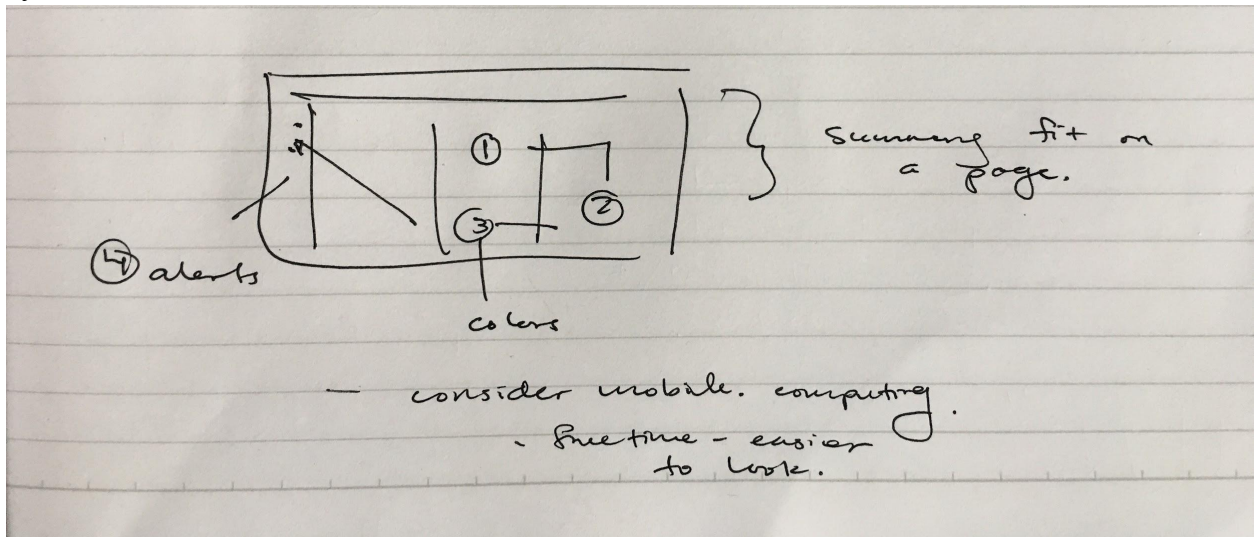 ①
②
③
④ alerts
colors
Summary fit on
a page.
— consider mobile. computing.
- Free time - easier
to look.